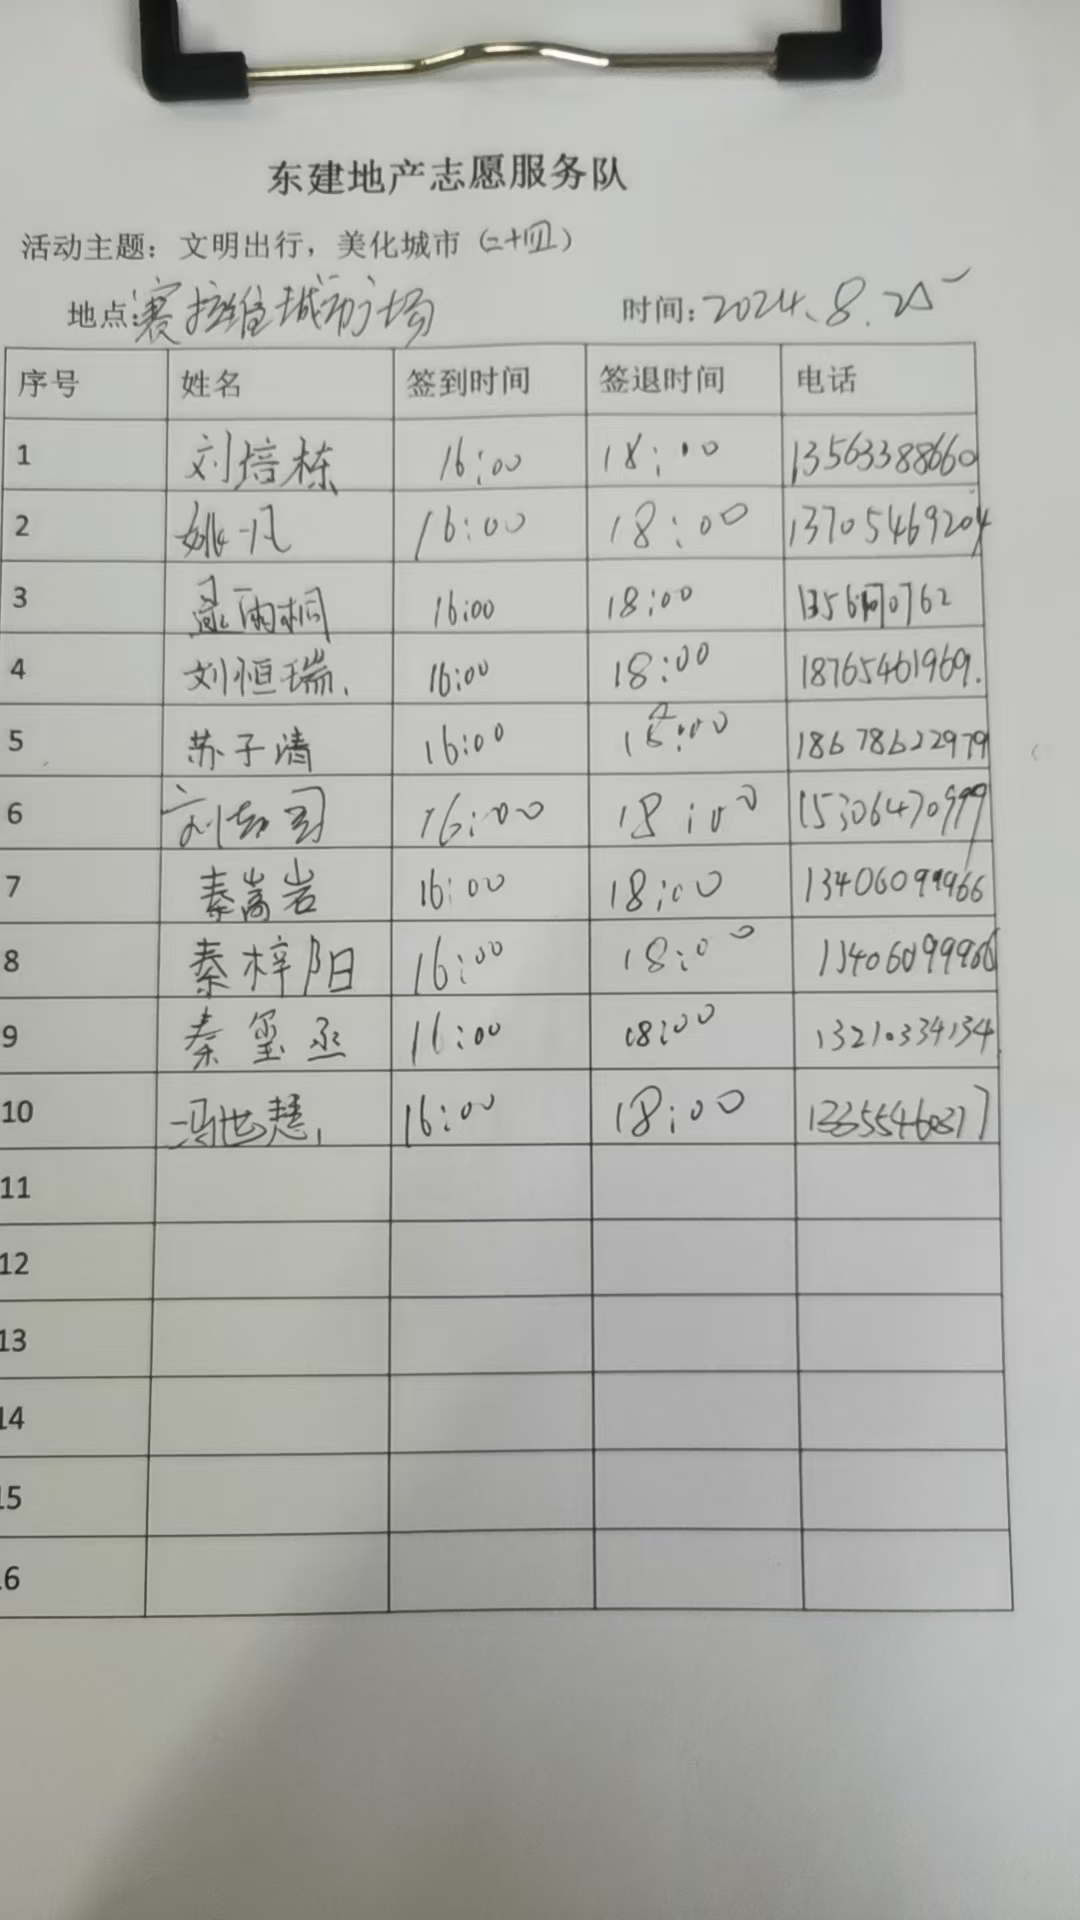 东建地产志愿服务队
活动主题：文明出行，美化城市（二十四）
地点：赛拉维城市广场 时间：2024.8.25
序号 姓名 签到时间 签退时间 电话
1 刘培栋 16:00 18:00 13563388660
2 姚一凡 16:00 18:00 13705469204
3 孟雨桐 16:00 18:00
4 刘恒瑞 16:00 18:00 18765461969.
5 苏子清 16:00 18:00 18678622979
6 16:00 18:00 15306470999
7 秦嵩岩 16:00 18:00 13406099966
8 秦梓阳 16:00 18:00 13406099966
9 秦玺丞 16:00 18:00 13210334134
10 冯世慧 16:00 18:00
11
12
13
14
15
16